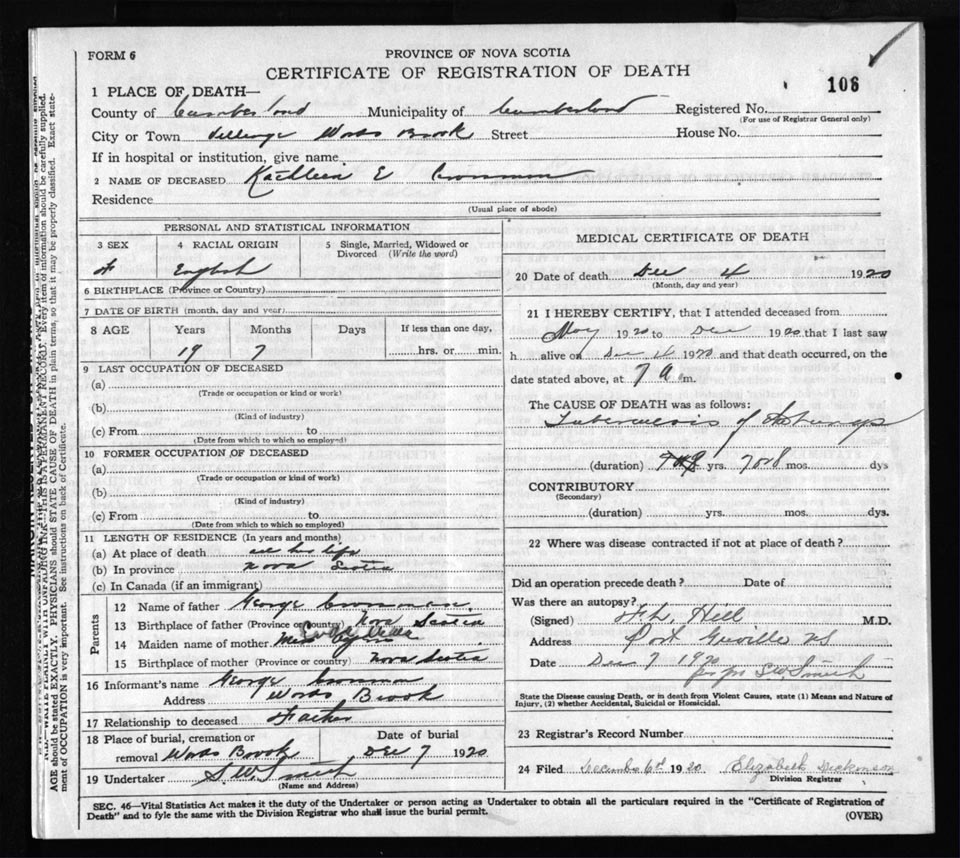 FORM 6
PROVINCE OF NOVA SCOTIA
CERTIFICATE OF REGISTRATION OF DEATH
106
1 PLACE OF DEATH—
County of Cumberland Municipality of Cumberland Registered No.
(For use of Registrar General only)
City or Town Brook Street House No.
If in hospital or institution, give name
2 NAME OF DECEASED Kathleen E
Residence
(Usual place of abode)
PERSONAL AND STATISTICAL INFORMATION
3 SEX 4 RACIAL ORIGIN 5 Single, Married, Widowed or Divorced (Write the word)
F English
6 BIRTHPLACE (Province or Country)
7 DATE OF BIRTH (month, day and year)
8 AGE Years Months Days If less than one day,
19 7 hrs. or min.
9 LAST OCCUPATION OF DECEASED
(a)
(Trade or occupation or kind or work)
(b)
(Kind of industry)
(c) From to
(Date from which to which so employed)
10 FORMER OCCUPATION OF DECEASED
(a)
(Trade or occupation or kind of work)
(b)
(Kind of industry)
(c) From to
(Date from which to which so employed)
11 LENGTH OF RESIDENCE (In years and months)
(a) At place of death all his life
(b) In province Nova Scotia
(c) In Canada (if an immigrant)
Parents
12 Name of father George
13 Birthplace of father (Province or country) Nova Scotia
14 Maiden name of mother
15 Birthplace of mother (Province or country) Nova Scotia
16 Informant's name George
Address Brook
17 Relationship to deceased Father
18 Place of burial, cremation or removal Brook
Date of burial Dec 7 1920
19 Undertaker S W Smith
(Name and Address)
MEDICAL CERTIFICATE OF DEATH
20 Date of death Dec 4 1920
(Month, day and year)
21 I HEREBY CERTIFY, that I attended deceased from
May 1920 to Dec 1920 that I last saw
h alive on Dec 4 1920 and that death occurred, on the
date stated above, at 7 a m.
The CAUSE OF DEATH was as follows:
Tuberculosis of
(duration) yrs. 7 or 8 mos. dys
CONTRIBUTORY
(Secondary)
(duration) yrs. mos. dys.
22 Where was disease contracted if not at place of death?
Did an operation precede death? Date of
Was there an autopsy?
(Signed) Hill M.D.
Address Port Greville NS
Date Dec 7 1920
S W Smith
State the Disease causing Death, or in death from Violent Causes, state (1) Means and Nature of
Injury, (2) whether Accidental, Suicidal or Homicidal.
23 Registrar's Record Number
24 Filed December 6th 1920 Elizabeth Dickinson
Division Registrar
SEC. 46—Vital Statistics Act makes it the duty of the Undertaker or person acting as Undertaker to obtain all the particulars required in the "Certificate of Registration of
Death" and to fyle the same with the Division Registrar who shall issue the burial permit.
(OVER)
WRITE PLAINLY WITH UNFADING INK—THIS IS A PERMANENT RECORD. Every item of information should be carefully supplied.
AGE should be stated EXACTLY. PHYSICIANS should STATE CAUSE OF DEATH in plain terms, so that it may be properly classified. Exact state-
ment of OCCUPATION is very important. See instructions on back of Certificate.